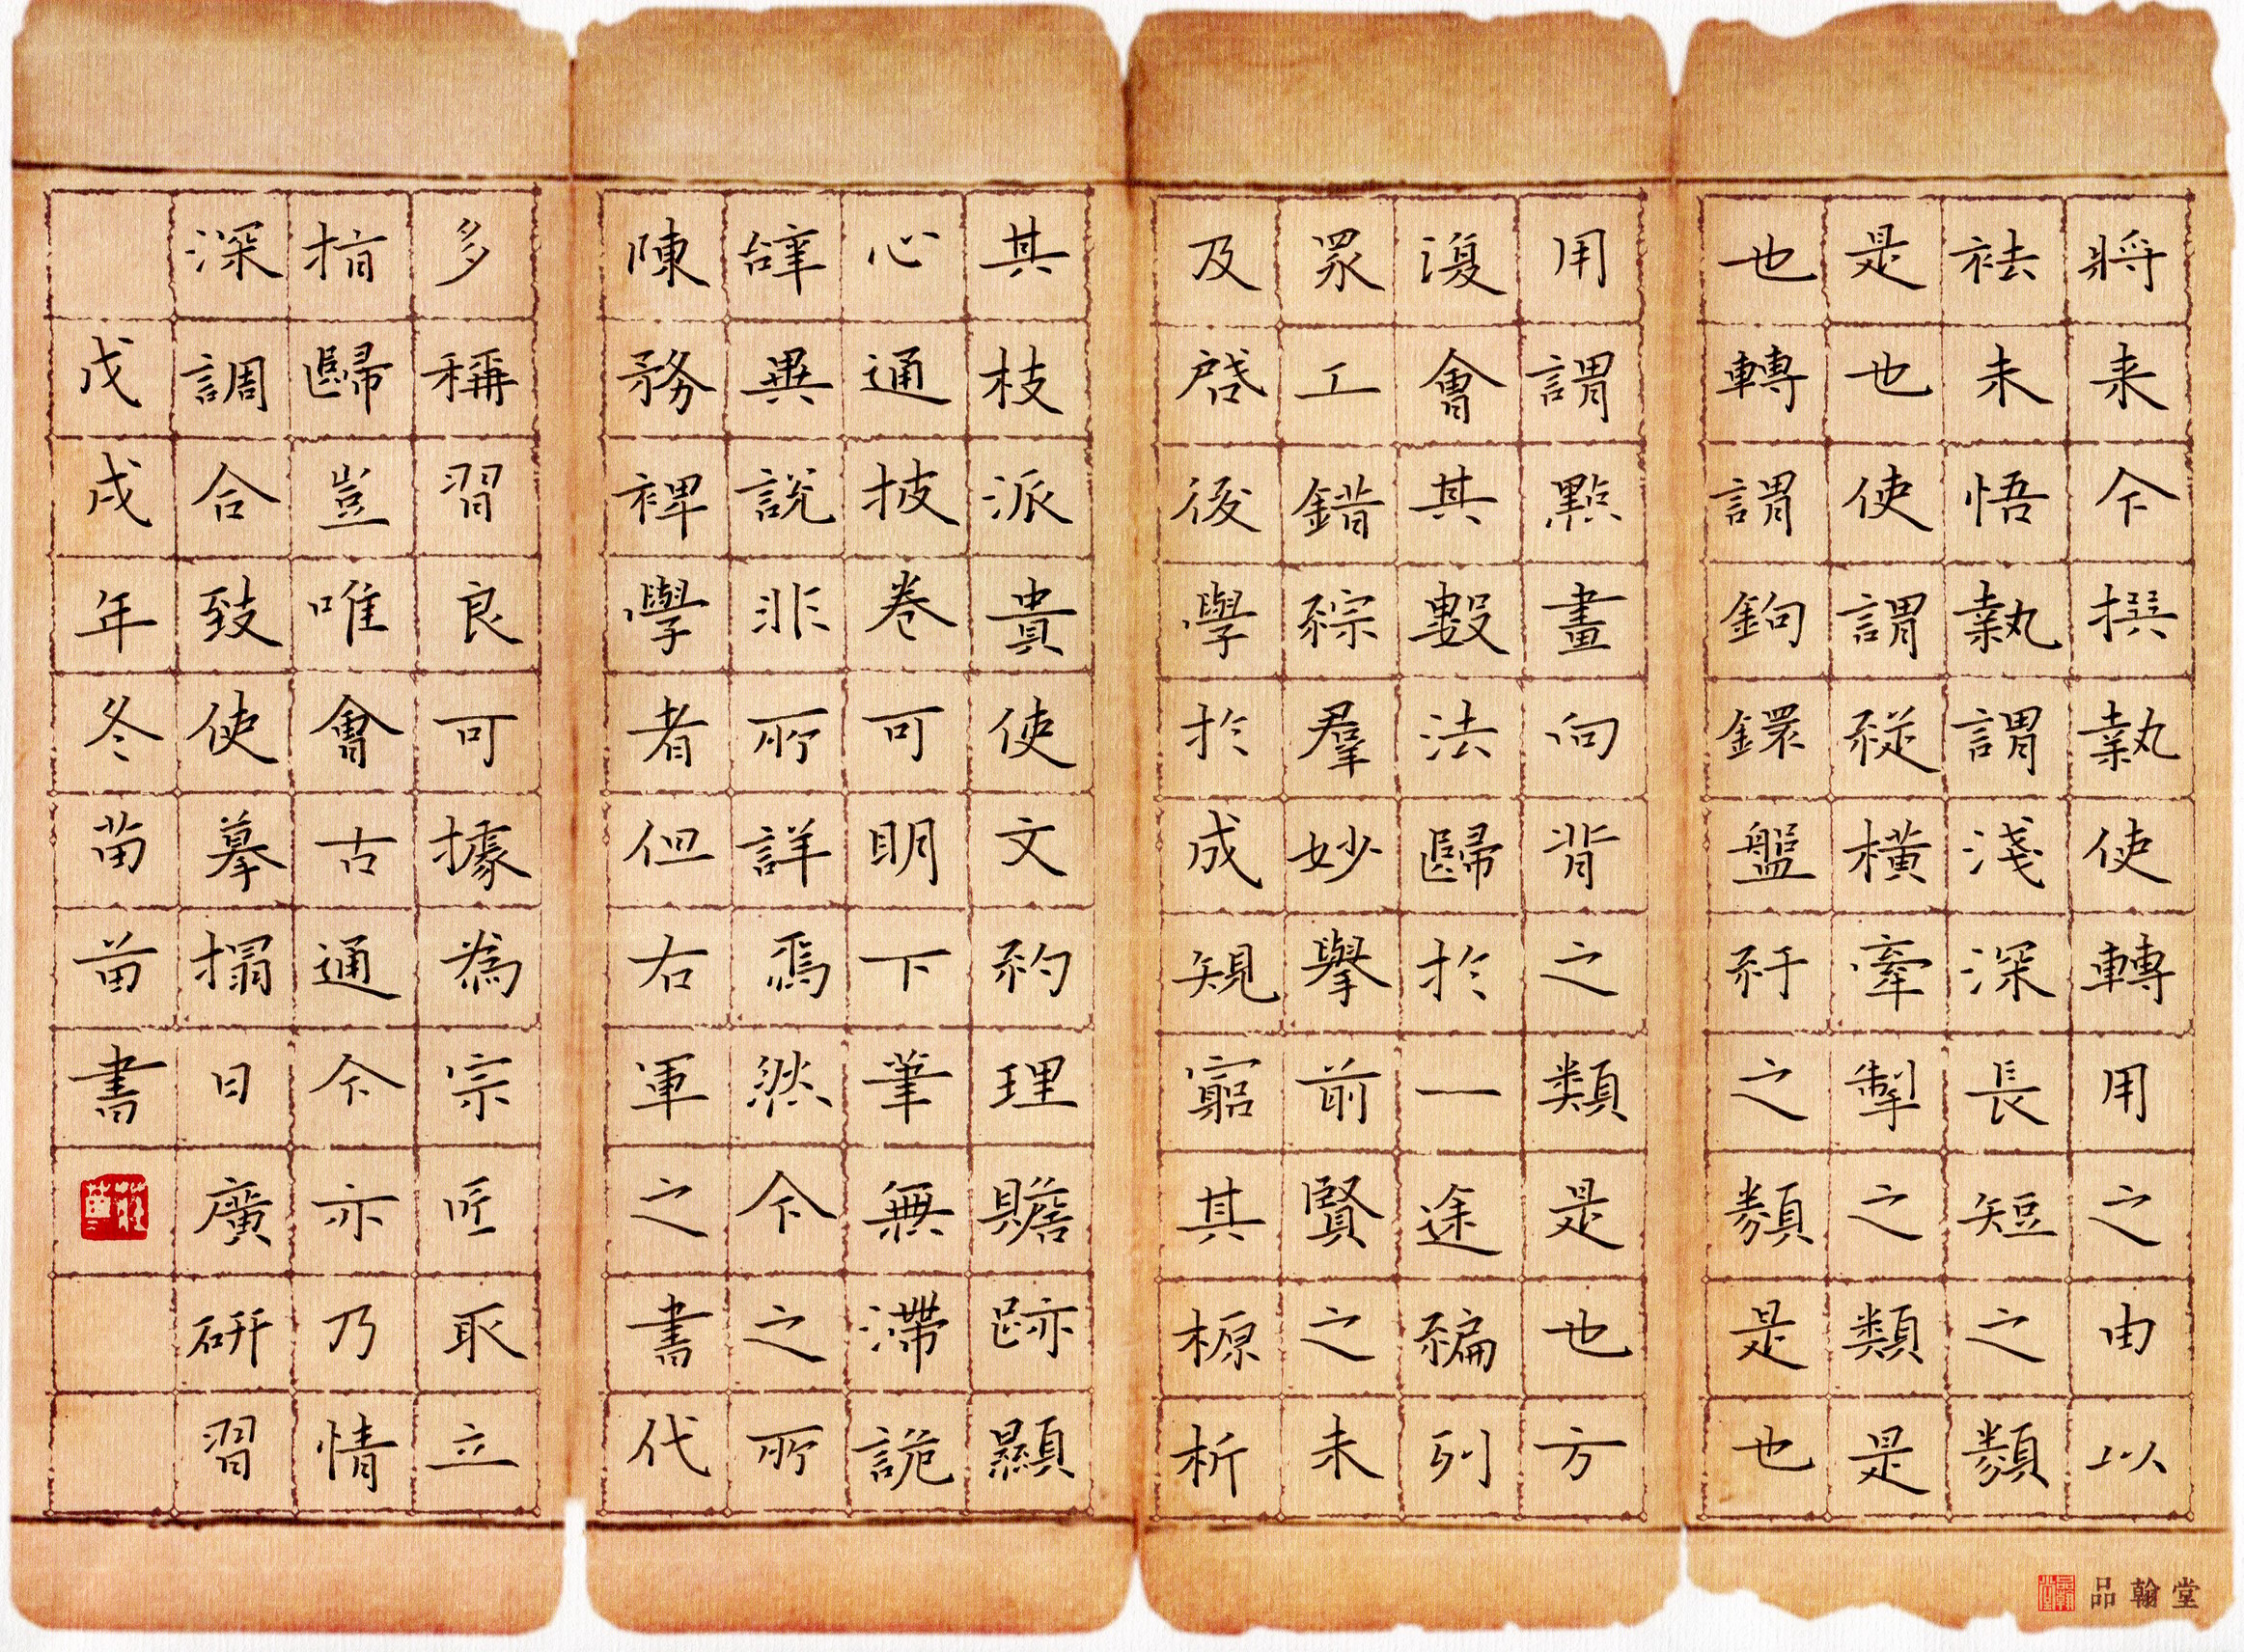 將来今撰執使轉用之由以
祛未悟執謂淺深長短之類
是也使謂縱橫牽掣之類是
也轉謂鉤鐶盤紆之類是也
用謂點畫向背之類是也方
復會其數法歸於一途編列
眾工錯綜羣妙舉前賢之未
及啓後學於成規窮其榞析
其枝派貴使文約理贍跡顯
心通披卷可明下筆無滯詭
辭異說非所詳焉然今之所
陳務裨學者但右軍之書代
多稱習良可據為宗匠取立
指歸豈唯會古通今亦乃情
深調合致使摹搨日廣研習
戊戌年冬苗苗書
品翰堂